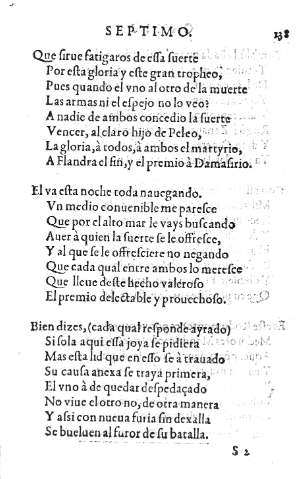 SEPTIMO. 138
Que sirue fatigaros de essa suerte
Por esta gloria y este gran tropheo,
Pues quando el vno al otro de la muerte
Las armas ni el espejo no lo veo?
A nadie de ambos concedio la suerte
Vencer, al claro hijo de Peleo,
La gloria, à todos, à ambos el martyrio,
A Flandra el fin, y el premio à Damasirio.
El va esta noche toda nauegando.
Vn medio conuenible me paresce
Que por el alto mar le vays buscando
Auer à quien la suerte se le offresce,
Y al que se le offresciere no negando
Que cada qual entre ambos lo meresce
Que lleue deste hecho valeroso
El premio delectable y prouechoso.
Bien dizes, (cada qual responde ayrado)
Si sola aqui essa joya se pidiera
Mas esta lid que en esso se à trauado
Su causa anexa se traya primera,
El vno à de quedar despedaçado
No viue el otro no, de otra manera
Y assi con nueua furia sin dexalla
Se bueluen al furor de su batalla.
S 2